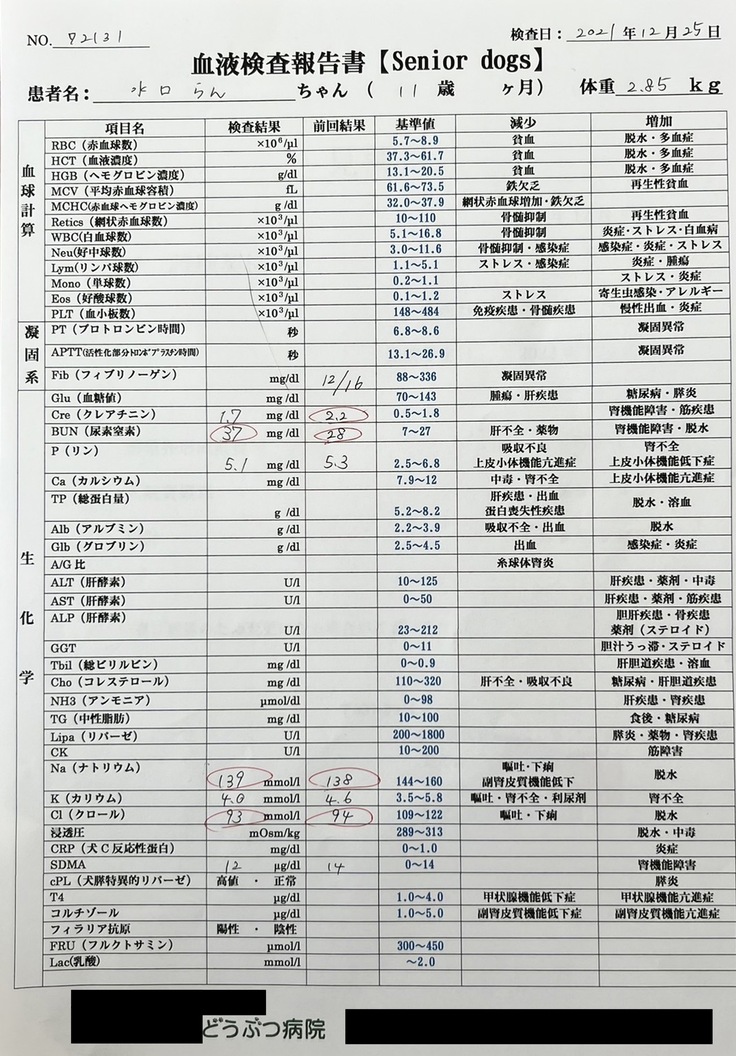 NO. 72131
検査日： 2021 年 12 月 25 日
血液検査報告書【Senior dogs】
患者名： 水口 らん ちゃん （ 11 歳 ヶ月） 体重 2.85 ｋｇ
項目名 検査結果 前回結果 基準値 減少 増加
血球計算
RBC（赤血球数） ×10⁶/μl 5.7～8.9 貧血 脱水・多血症
HCT（血液濃度） % 37.3～61.7 貧血 脱水・多血症
HGB（ヘモグロビン濃度） g/dl 13.1～20.5 貧血 脱水・多血症
MCV（平均赤血球容積） fL 61.6～73.5 鉄欠乏 再生性貧血
MCHC(赤血球ヘモグロビン濃度) g /dl 32.0～37.9 網状赤血球増加・鉄欠乏
Retics（網状赤血球数） ×10³/μl 10～110 骨髄抑制 再生性貧血
WBC(白血球数） ×10³/μl 5.1～16.8 骨髄抑制 炎症・ストレス・白血病
Neu(好中球数） ×10³/μl 3.0～11.6 骨髄抑制・感染症 感染症・炎症・ストレス
Lym(リンパ球数） ×10³/μl 1.1～5.1 ストレス・感染症 炎症・腫瘍
Mono（単球数） ×10³/μl 0.2～1.1 ストレス・炎症
Eos（好酸球数） ×10³/μl 0.1～1.2 ストレス 寄生虫感染・アレルギー
PLT（血小板数） ×10³/μl 148～484 免疫疾患・骨髄疾患 慢性出血・炎症
凝固系
PT（プロトロンビン時間） 秒 6.8～8.6 凝固異常
APTT(活性化部分ﾄﾛﾝﾎﾞﾌﾟﾗｽﾁﾝ時間) 秒 13.1～26.9 凝固異常
Fib（フィブリノーゲン） mg/dl 12/16 88～336 凝固異常
生化学
Glu（血糖値） mg /dl 70～143 腫瘍・肝疾患 糖尿病・膵炎
Cre（クレアチニン） 1.7 mg /dl 2.2 0.5～1.8 腎機能障害・筋疾患
BUN（尿素窒素） 37 mg/dl 28 7～27 肝不全・薬物 腎機能障害・脱水
P（リン） 5.1 mg /dl 5.3 2.5～6.8 吸収不良 上皮小体機能亢進症 腎不全 上皮小体機能低下症
Ca（カルシウム） mg /dl 7.9～12 中毒・腎不全 上皮小体機能亢進症
TP（総蛋白量） g /dl 5.2～8.2 肝疾患・出血 蛋白喪失性疾患 脱水・溶血
Alb（アルブミン） g /dl 2.2～3.9 吸収不全・出血 脱水
Glb（グロブリン） g /dl 2.5～4.5 出血 感染症・炎症
A/G 比 糸球体腎炎
ALT（肝酵素） U/l 10～125 肝疾患・薬剤・中毒
AST（肝酵素） U/l 0～50 肝疾患・薬剤・筋疾患
ALP（肝酵素） U/l 23～212 胆肝疾患・骨疾患 薬剤（ステロイド）
GGT U/l 0～11 胆汁うっ滞・ステロイド
Tbil（総ビリルビン） mg /dl 0～0.9 肝胆道疾患・溶血
Cho（コレステロール） mg /dl 110～320 肝不全・吸収不良 糖尿病・肝胆道疾患
NH3（アンモニア） μmol/dl 0～98 肝疾患・腎疾患
TG（中性脂肪） mg /dl 10～100 食後・糖尿病
Lipa（リパーゼ） U/l 200～1800 膵炎・薬物・腎疾患
CK U/l 10～200 筋障害
Na（ナトリウム） 139 mmol/l 138 144～160 嘔吐・下痢 副腎皮質機能低下 脱水
K（カリウム） 4.0 mmol/l 4.6 3.5～5.8 嘔吐・腎不全・利尿剤 腎不全
Cl（クロール） 93 mmol/l 94 109～122 嘔吐・下痢 脱水
浸透圧 mOsm/kg 289～313 脱水・中毒
CRP（犬 C 反応性蛋白） mg/dl 0～1.0 炎症
SDMA 12 μg/dl 14 0～14 腎機能障害
cPL（犬膵特異的リパーゼ） 高値 ・ 正常 膵炎
T4 μg/dl 1.0～4.0 甲状腺機能低下症 甲状腺機能亢進症
コルチゾール μg/dl 1.0～5.0 副腎皮質機能低下症 副腎皮質機能亢進症
フィラリア抗原 陽性 ・ 陰性
FRU（フルクトサミン） μmol/l 300～450
Lac(乳酸） mmol/l ～2.0
どうぶつ病院